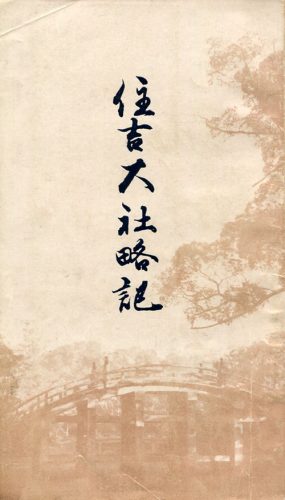 住吉大社略記